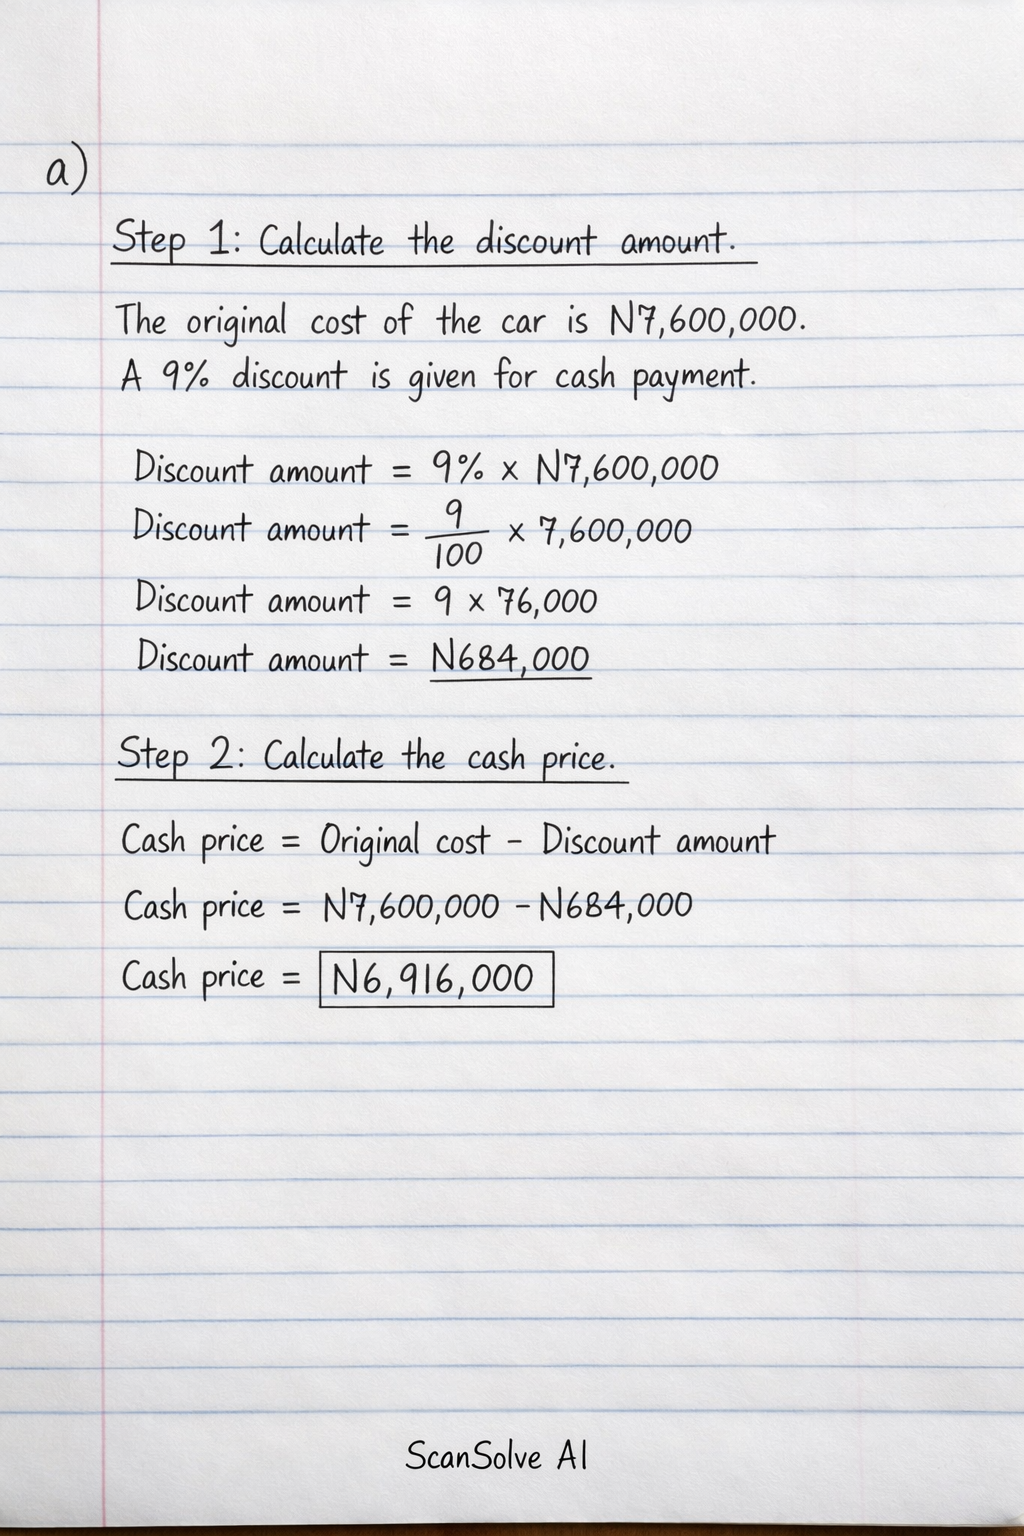 a)
Step 1: Calculate the discount amount.
The original cost of the car is N7,600,000.
A 9% discount is given for cash payment.
Discount amount = 9% × N7,600,000
Discount amount = 9/100 × 7,600,000
Discount amount = 9 × 76,000
Discount amount = N684,000
Step 2: Calculate the cash price.
Cash price = Original cost - Discount amount
Cash price = N7,600,000 - N684,000
Cash price = N6,916,000
ScanSolve AI